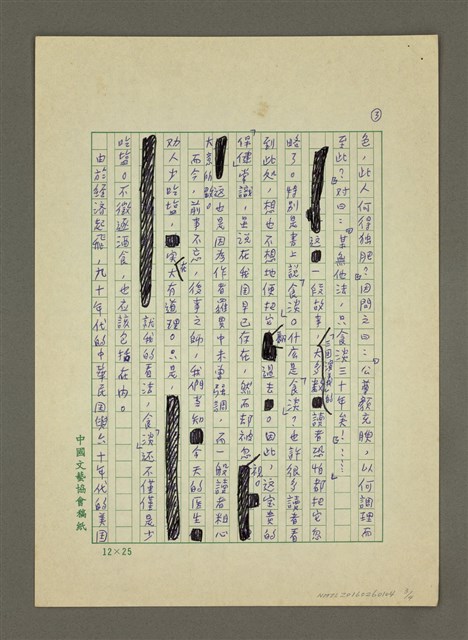 ③
色，此人何得独肥？因問之曰：「公尊顏充腴，以何調理而
至此？」對曰：「某無他法，只食淡三十年矣！……」
這一段故事，大多數三国演義的讀者恐怕都把它忽
略了。特別是書上說「食淡」。什么是「食淡」？也許很多讀者看
到此処，想也不想地便把它翻過去。因此，這宝貴的
「保健常識」，虽說在我国早已存在，然而却被忽視。
這也是因為作者羅貫中未事強調，而一般讀者粗心
大意的
而今，前事不忘，後事之師，我們專知今天的医生
劝人少吃塩，实在大有道理。只是，
就我的看法，「食淡」还不僅僅是少
吃塩。不徵逐酒食，也应該包括在内。
由於經済起飛，九十年代的中華民国與六十年代的美国
中國文藝協會稿紙
12×25
3/4